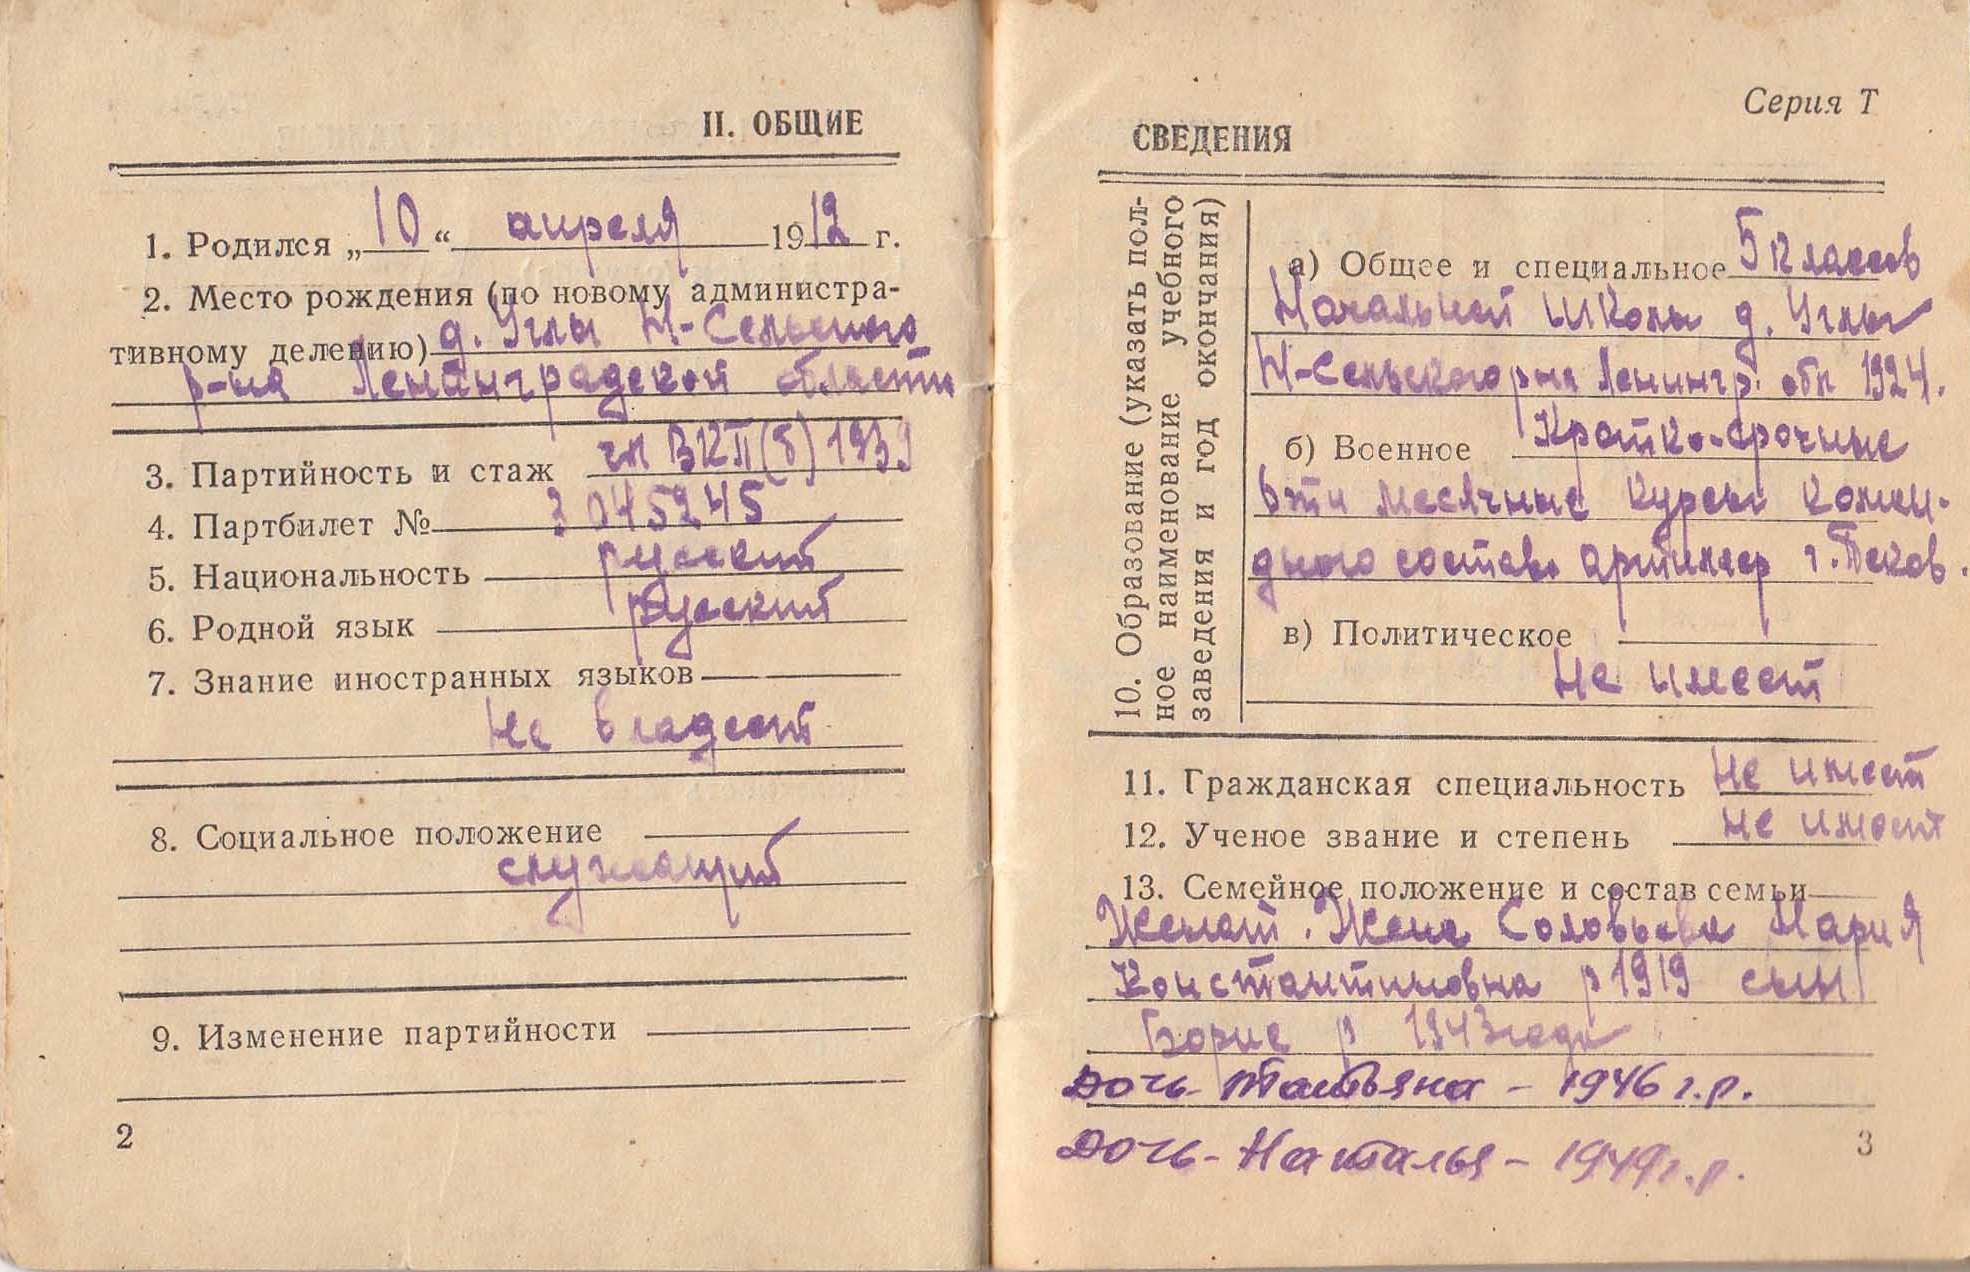 II. ОБЩИЕ
1. Родился „10“ апреля 1912 г.
2. Место рождения (по новому администра-
тивному делению) д. Углы Н-Сельского
р-на Ленинградской области
3. Партийность и стаж чл ВКП(б) 1939
4. Партбилет № 3045245
5. Национальность русский
6. Родной язык русский
7. Знание иностранных языков
Не владеет
8. Социальное положение
служащий
9. Изменение партийности
2
Серия Т
СВЕДЕНИЯ
10. Образование (указать пол-
ное наименование учебного
заведения и год окончания)
а) Общее и специальное 5 классов
Начальной школы д. Углы
Н-Сельского р-на Ленингр. обл 1924.
б) Военное Кратко-срочные
месячные курсы комен-
дного состава артиллер г. Псков.
в) Политическое
Не имеет
11. Гражданская специальность Не имеет
12. Ученое звание и степень не имеет
13. Семейное положение и состав семьи
Женат. Жена Соловьева Мария
Константиновна р 1919 сын
Борис р 1943 года
Дочь - Татьяна - 1946 г.р.
3
Дочь - Наталья - 1949 г.р.